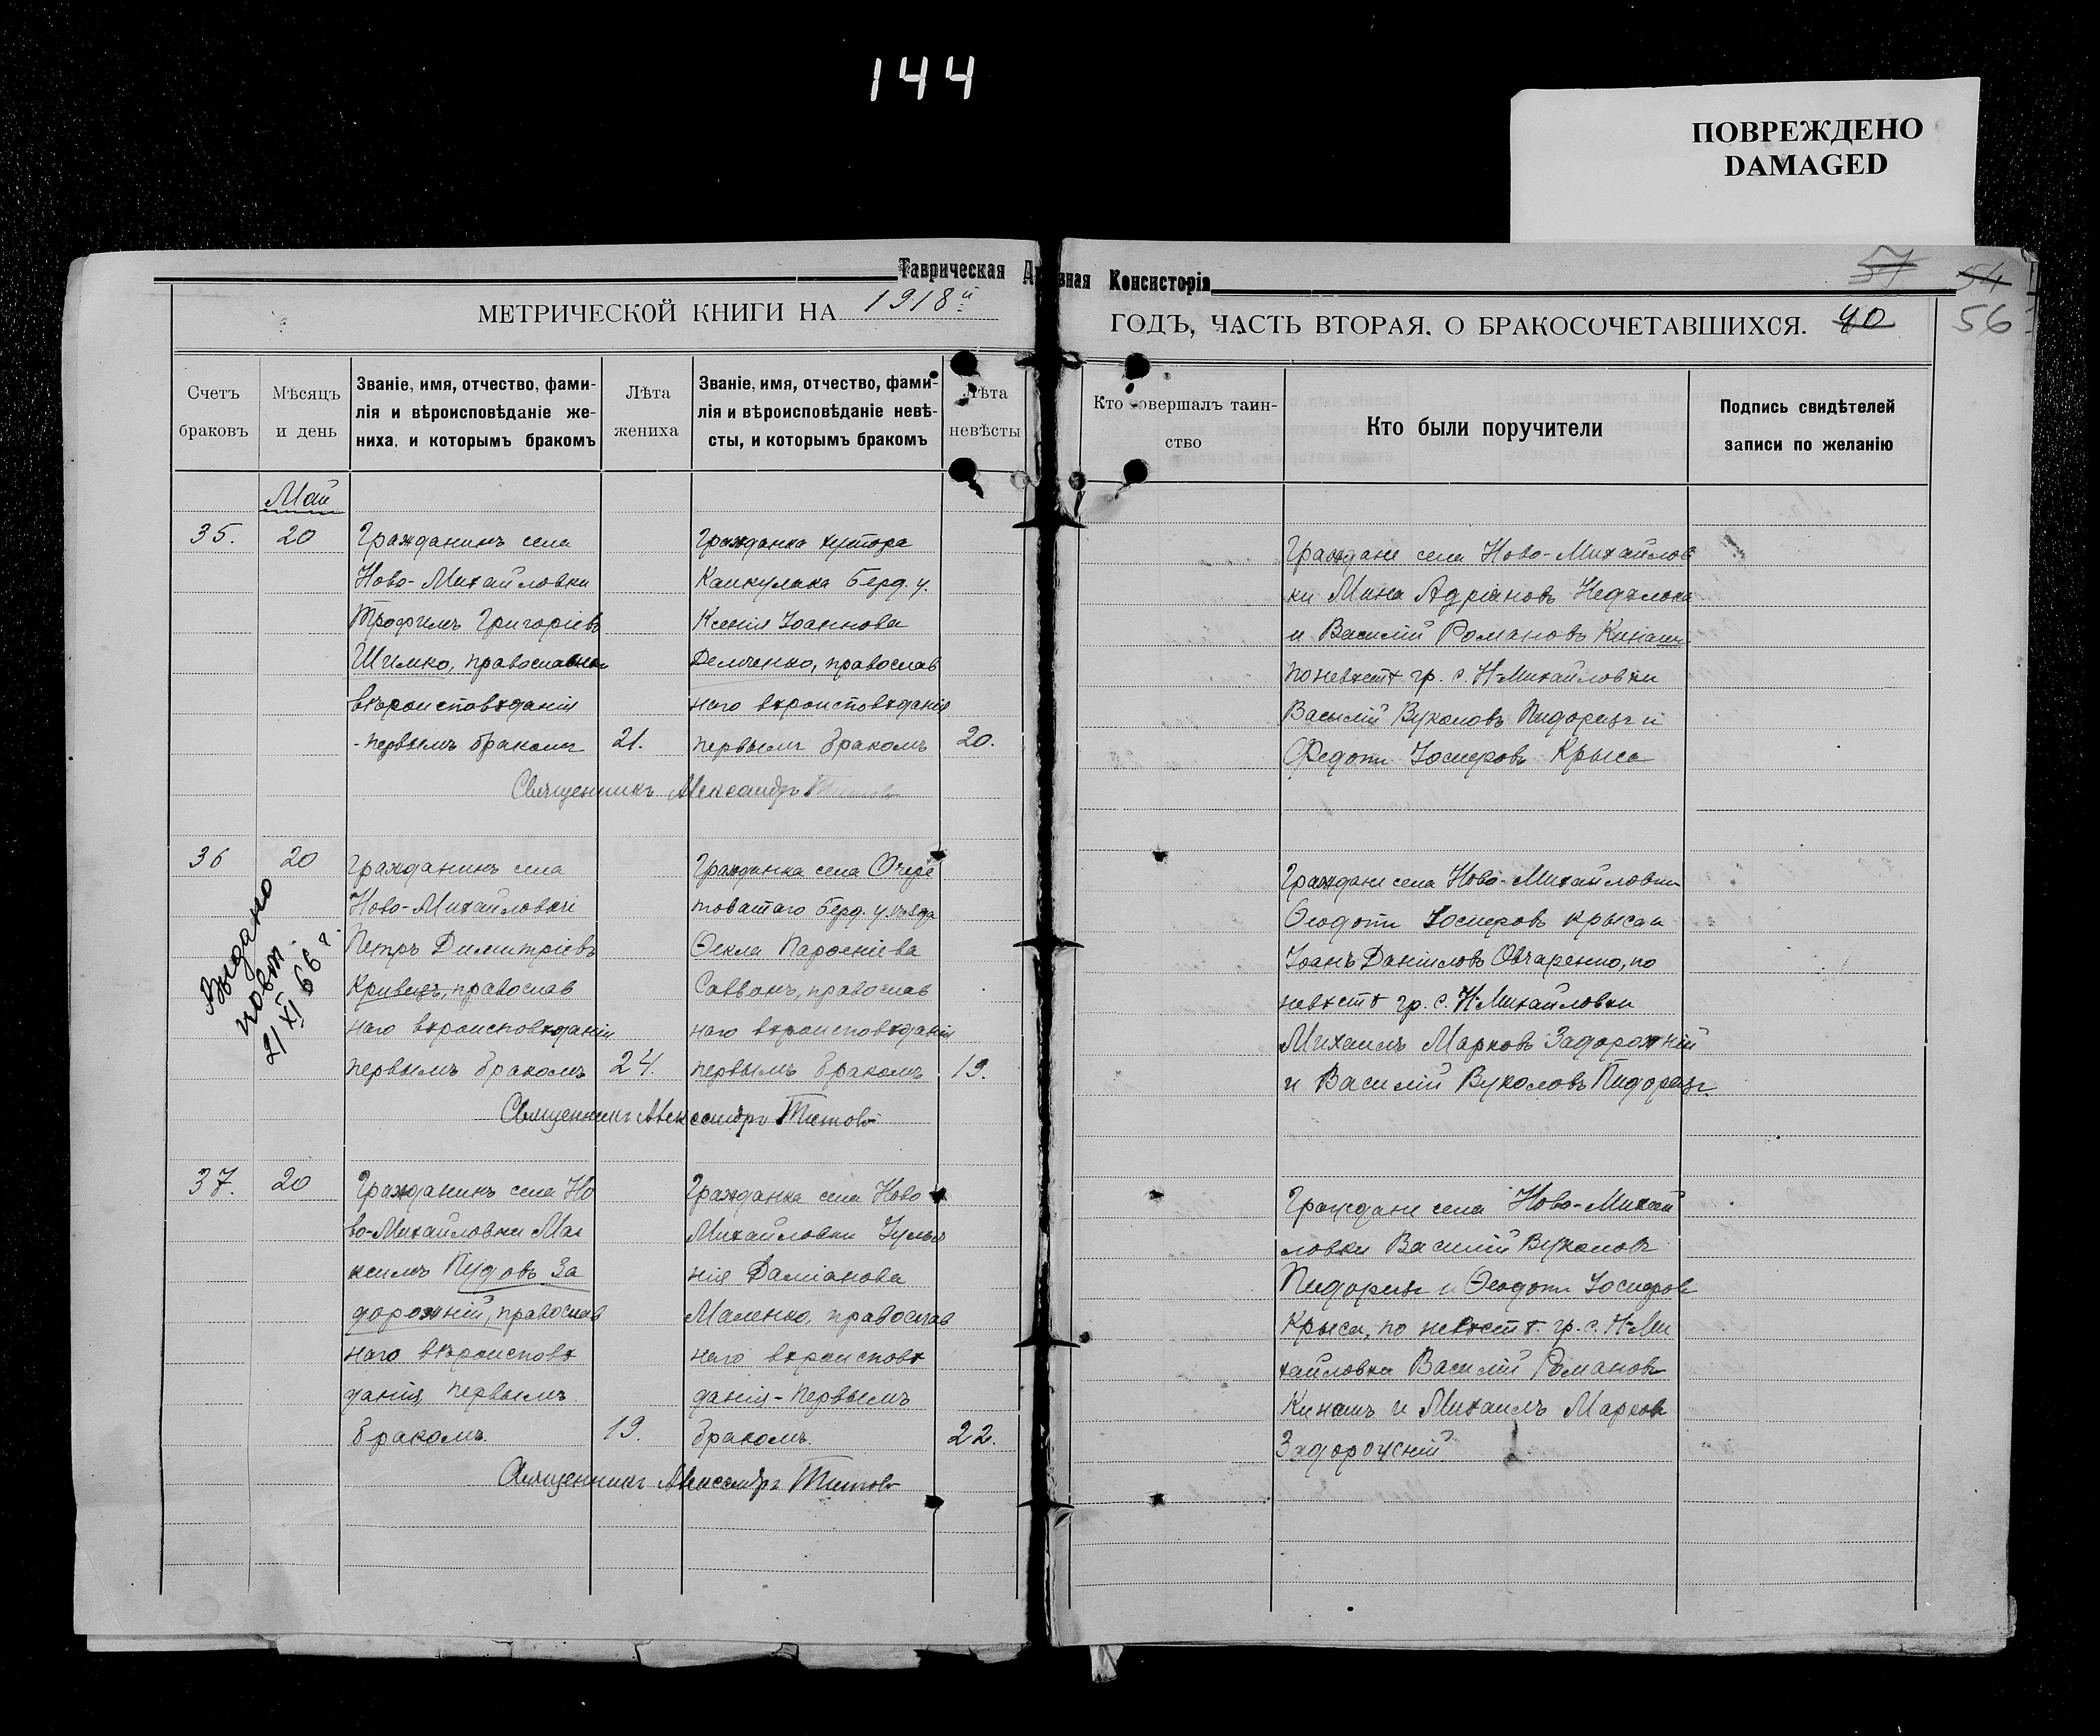 144
ПОВРЕЖДЕНО
DAMAGED
Таврическая
вная Консисторія
57
54
МЕТРИЧЕСКОЙ КНИГИ НА 1918й
ГОДЪ, ЧАСТЬ ВТОРАЯ, О БРАКОСОЧЕТАВШИХСЯ.
40
56
Счетъ
браковъ
Мѣсяцъ
и день
Званіе, имя, отчество, фами-
лія и вѣроисповѣданіе же-
ниха, и которымъ бракомъ
Лѣта
жениха
Званіе, имя, отчество, фами-
лія и вѣроисповѣданіе невѣ-
сты, и которымъ бракомъ
Лѣта
невѣсты
Кто совершалъ таин-
ство
Кто были поручители
Подпись свидѣтелей
записи по желанію
Май
35.
20
Гражданинъ села
Ново-Михайловки
Трофимъ Григоріевъ
Шимко, православнаго
вѣроисповѣданія
-первымъ бракомъ
21.
Гражданка хутора
Канкулака Берд. у.
Ксенія Іоаннова
Демченко, православ
наго вѣроисповѣданія
первымъ бракомъ
20.
Священникъ Александръ Титовъ
Граждане села Ново-Михайлов
ки Мина Адріановъ Недѣлока
и Василій Романовъ Кинашъ
по невѣстѣ гр. с. Н-Михайловки
Василій Вуколовъ Пидорецъ и
Федотъ Іосифовъ Крыса
36
20
Гражданинъ села
Ново-Михайловки
Петръ Димитріевъ
Кривецъ, православ
наго вѣроисповѣданія
первымъ бракомъ
24.
Гражданка села Очере
товатаго Берд. у.ѣзда
Ѳекла Парѳеніева
Саввонъ, православ
наго вѣроисповѣданія
первымъ бракомъ
19.
Священникъ Александръ Титовъ
Выдано
повт.
21 XI 66 г.
Граждане села Ново-Михайловки
Ѳеодотъ Іосифовъ Крыса и
Іоанъ Даніиловъ Овчаренко, по
невѣстѣ гр. с. Н-Михайловки
Михаилъ Марковъ Задорожній
и Василій Вуколовъ Пидорецъ
37.
20
Гражданинъ села Но
во-Михайловки Мак
симъ Пудовъ За
дорожній, православ
наго вѣроисповѣ
данія, первымъ
бракомъ.
19.
Гражданка села Ново
Михайловки Іулiа
нія Даміанова
Маленко, православ
наго вѣроисповѣ
данія-первымъ
бракомъ.
22.
Священникъ Александръ Титовъ
Граждане села Ново-Михай
ловки Василій Вуколовъ
Пидорецъ и Ѳеодотъ Іосифовъ
Крыса, по невѣстѣ. гр. с. Н-Ми
хайловки Василій Романовъ
Кинашъ и Михаилъ Марковъ
Задорожній